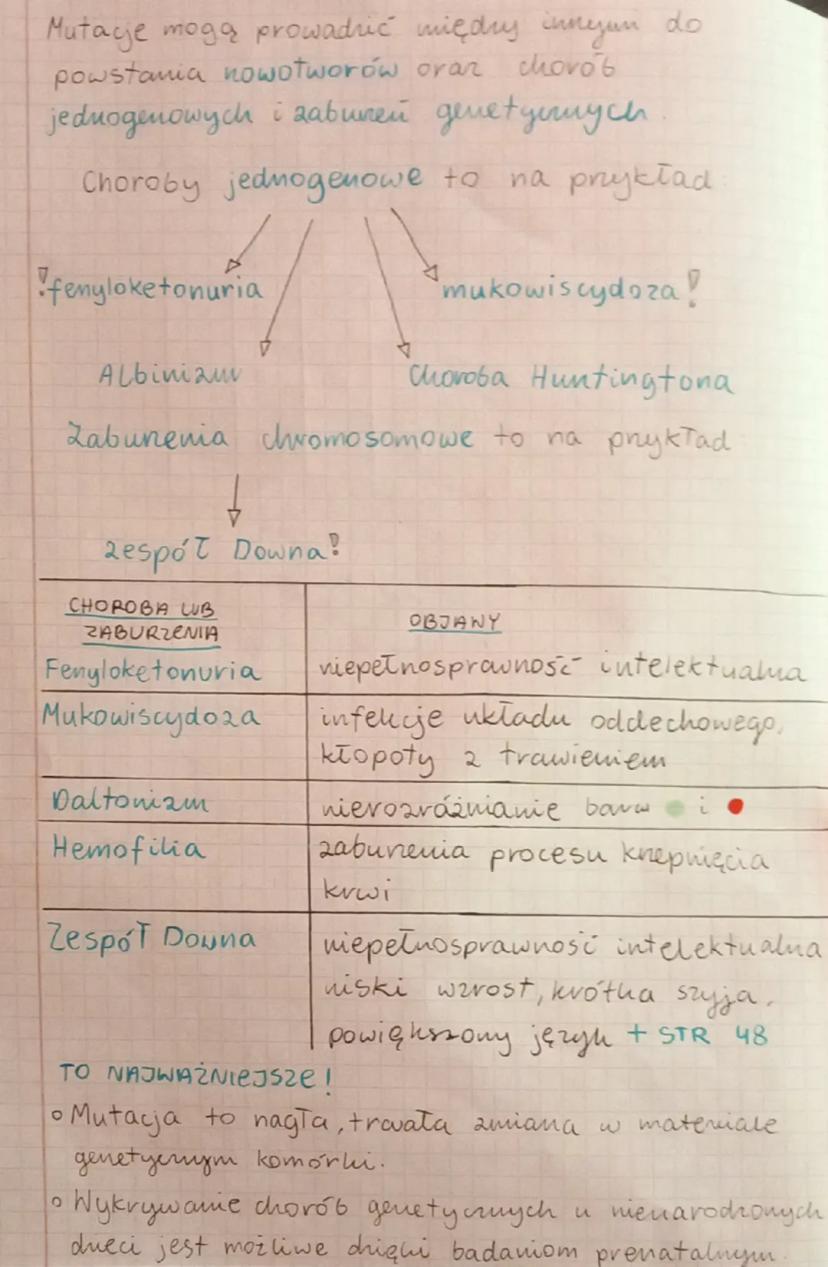 Mutacje mogą prowadzić między innymi do
powstania nowotworów oraz chorób
jednogenowych i zaburzeń genetycznych.
Choroby jednogenowe to na przykład:
!fenyloketonuria mukowiscydoza!
Albinizm Choroba Huntingtona
Zaburzenia chromosomowe to na przykład:
zespół Downa!
CHOROBA LUB
ZABURZENIA
OBJAWY
Fenyloketonuria niepełnosprawność intelektualna
Mukowiscydoza infekcje układu oddechowego,
kłopoty z trawieniem
Daltonizm nierozróżnianie barw i
Hemofilia zaburzenia procesu krzepnięcia
krwi
Zespół Downa niepełnosprawność intelektualna
niski wzrost, krótka szyja,
powiększony język + STR 48
TO NAJWAŻNIEJSZE!
Mutacja to nagła, trwała zmiana w materiale
genetycznym komórki.
Wykrywanie chorób genetycznych u nienarodzonych
dzieci jest możliwe dzięki badaniom prenatalnym.